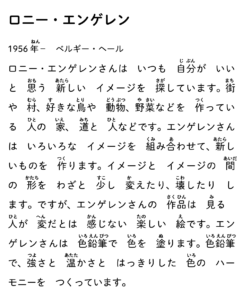 ロニー・エンゲレン
1956年－　ベルギー・ヘール
ロニー・エンゲレンさんは いつも 自分が いい
と 思う 新しい イメージを 探しています。街
や 村、好きな 鳥や 動物、野菜などを 作ってい
る 人の 家、道と 人などです。エンゲレンさん
は いろいろな イメージを 組み合わせて、新し
いものを 作ります。イメージと イメージの 間
の かたちを わざと 少し 変えたり、壊したり し
ます。ですが、エンゲレンさんの 作品は 見る
人が 変だとは 感じない 楽しい 絵です。エン
ゲレンさんは 色鉛筆で 色を 塗ります。色鉛筆
で、強さと 温かさと はっきりした 色の ハー
モニーを つくっています。